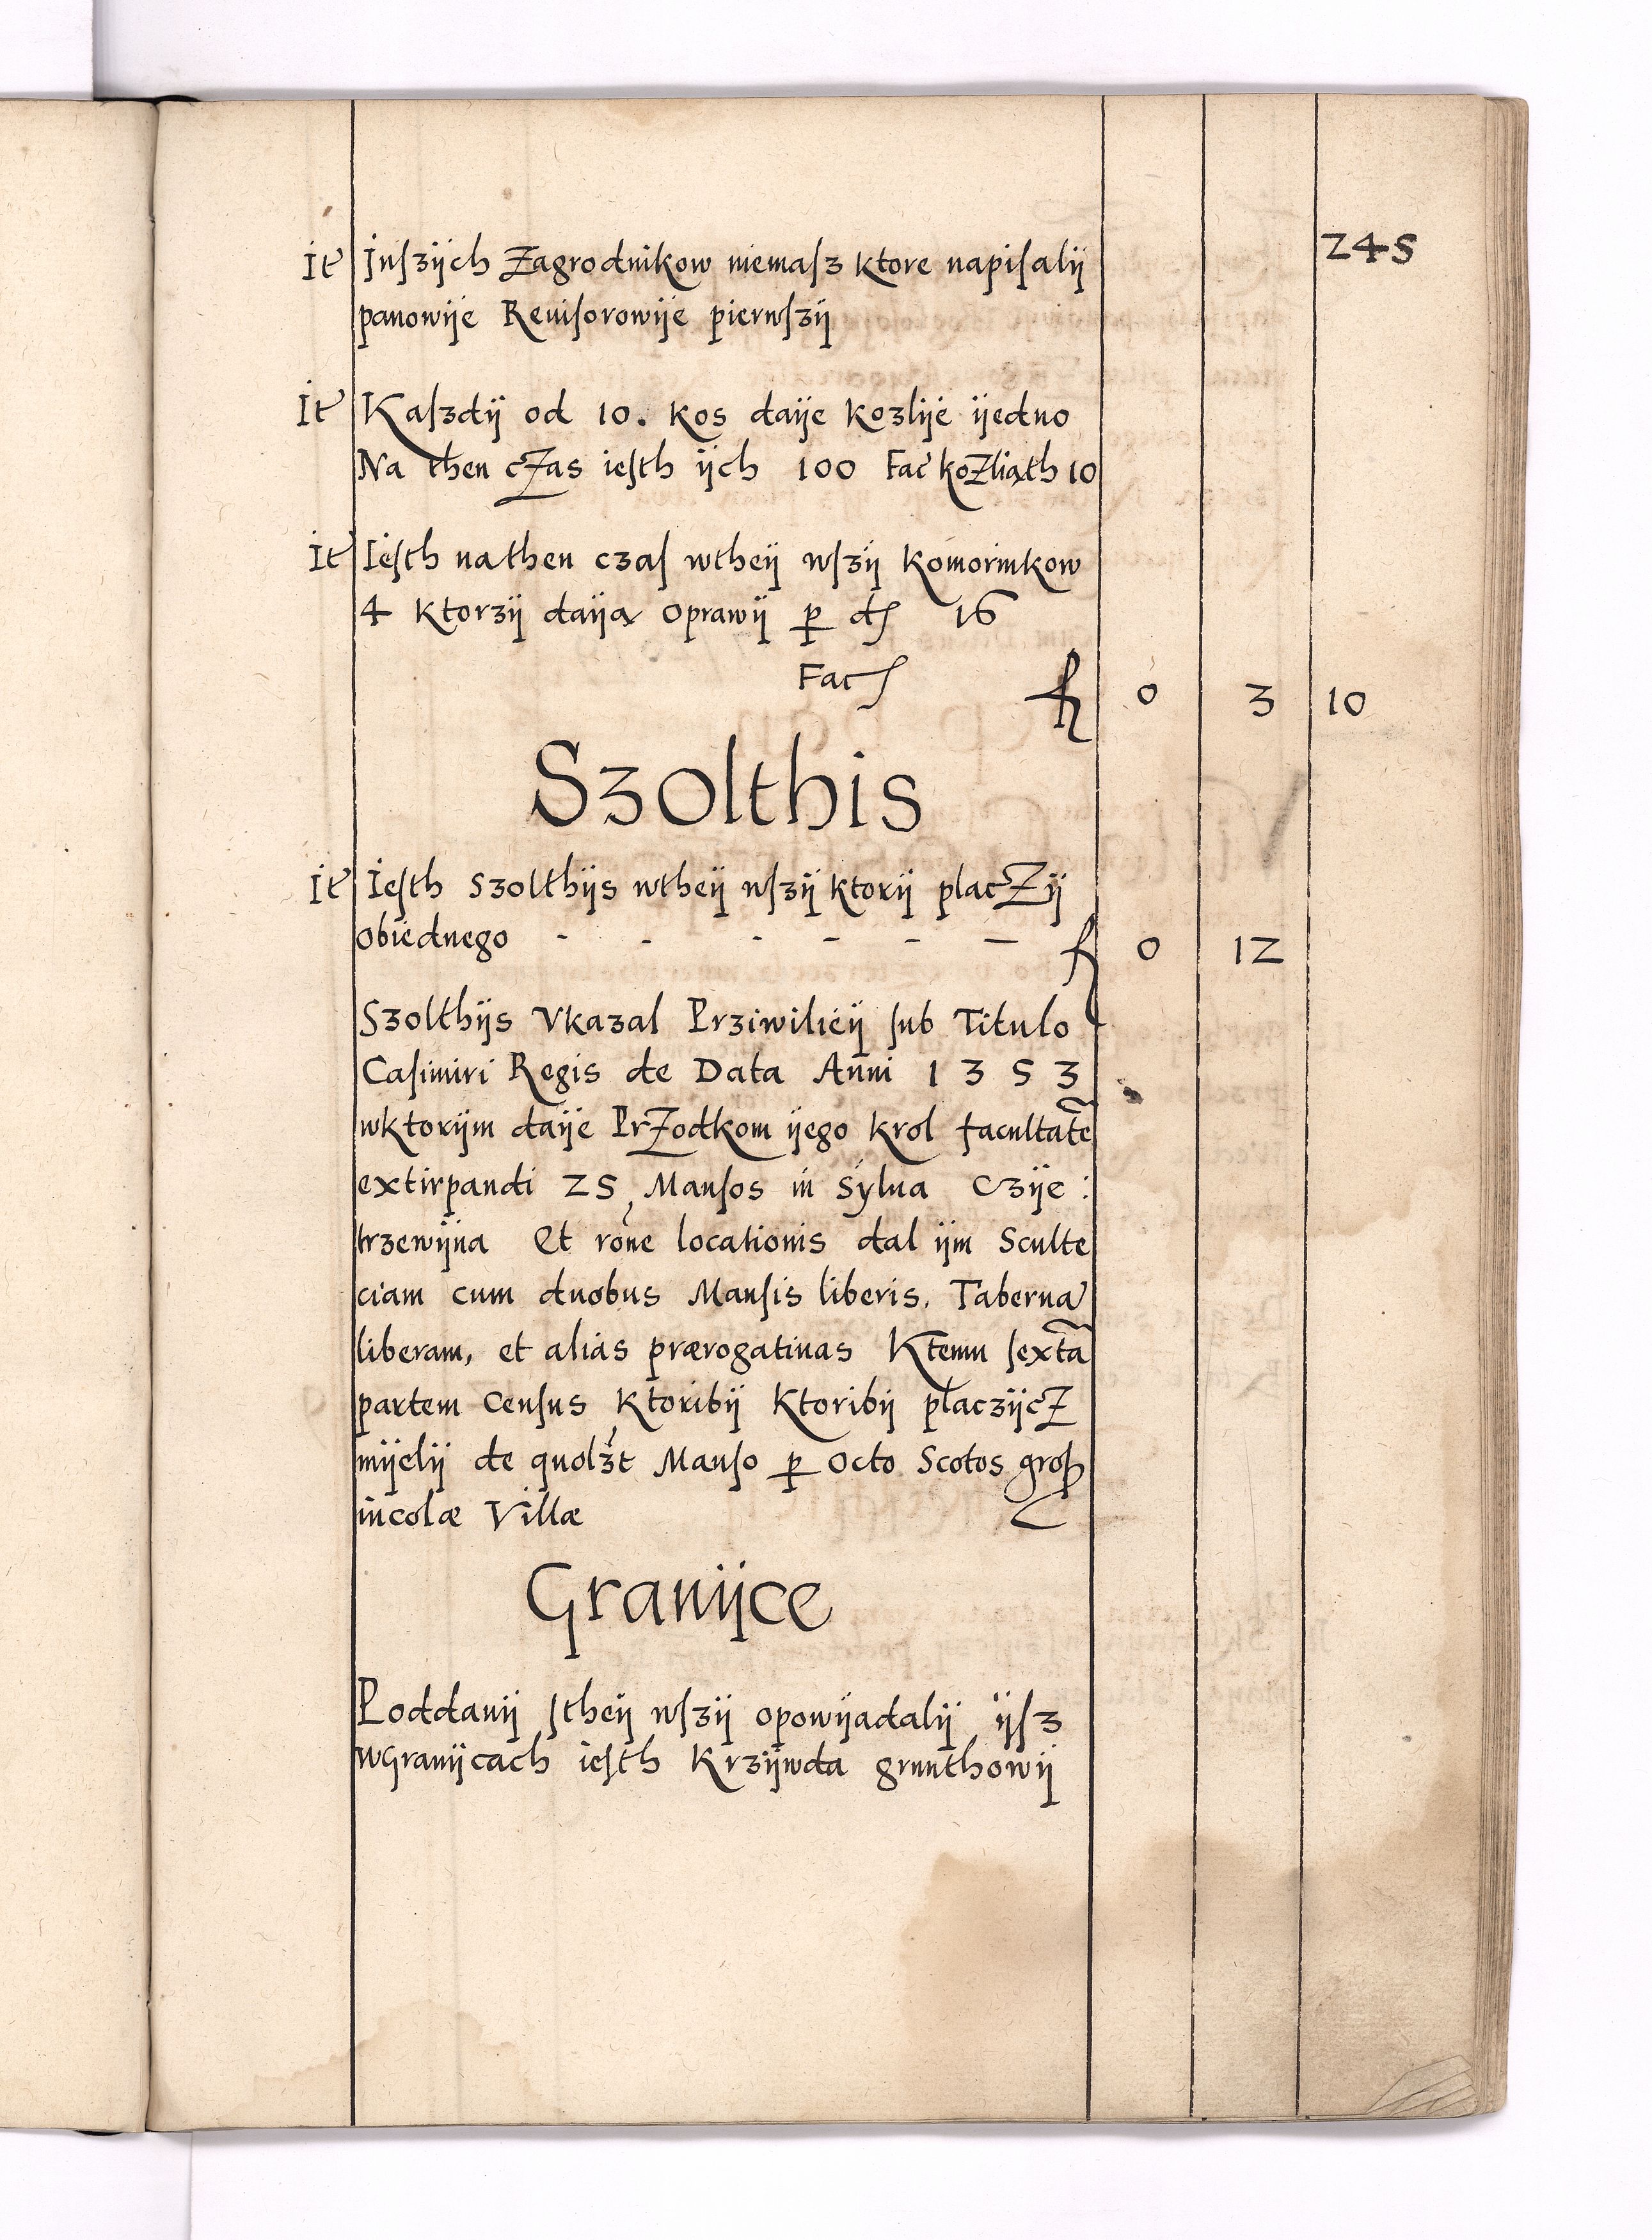 245
It Jnſzÿch Zagrodnikow niemaſz ktore napiſalÿ
panowÿe Reuiſorowÿe pierwſzÿ
It Kaſzdÿ od 10. kos daÿe kozlÿe ÿedno
Na then cZas ieſth ÿch 100 Fac koZliąth 10
It Ieſth na then czaſ wtheÿ wſzÿ komornikow
4 ktorzÿ daÿą oprawÿ ꝑ d 16
Fac f 0 3 10
Szolthis
It Ieſth szolthÿs wtheÿ wſzÿ ktorÿ placZÿ
obiednego - - - - - - f 0 12
Szolthÿs Vkazal Prziwilieÿ ſub Titulo
Caſimiri Regis de Data Anni 1353
wktorÿm daÿe PrZodkom ÿego krol facultatẽ
extirpandi 25 Manſos in sylua Czÿe:
trzewÿna Et rõne locationis dal ÿm Sculte
ciam cum duobus Manſis liberis, Taberna
liberam, et alias prærogatiuas Ktemu ſextã
partem Cenſus ktoribÿ ktoribÿ placzÿcZ
mÿelÿ de quolzt Manſo ꝑ octo Scotos groß
incolæ Villæ
Granÿce
Poddanÿ ſtheÿ wſzÿ opowÿadalÿ ÿſz
wGranÿcach ieſth krzÿwda grunthowÿ